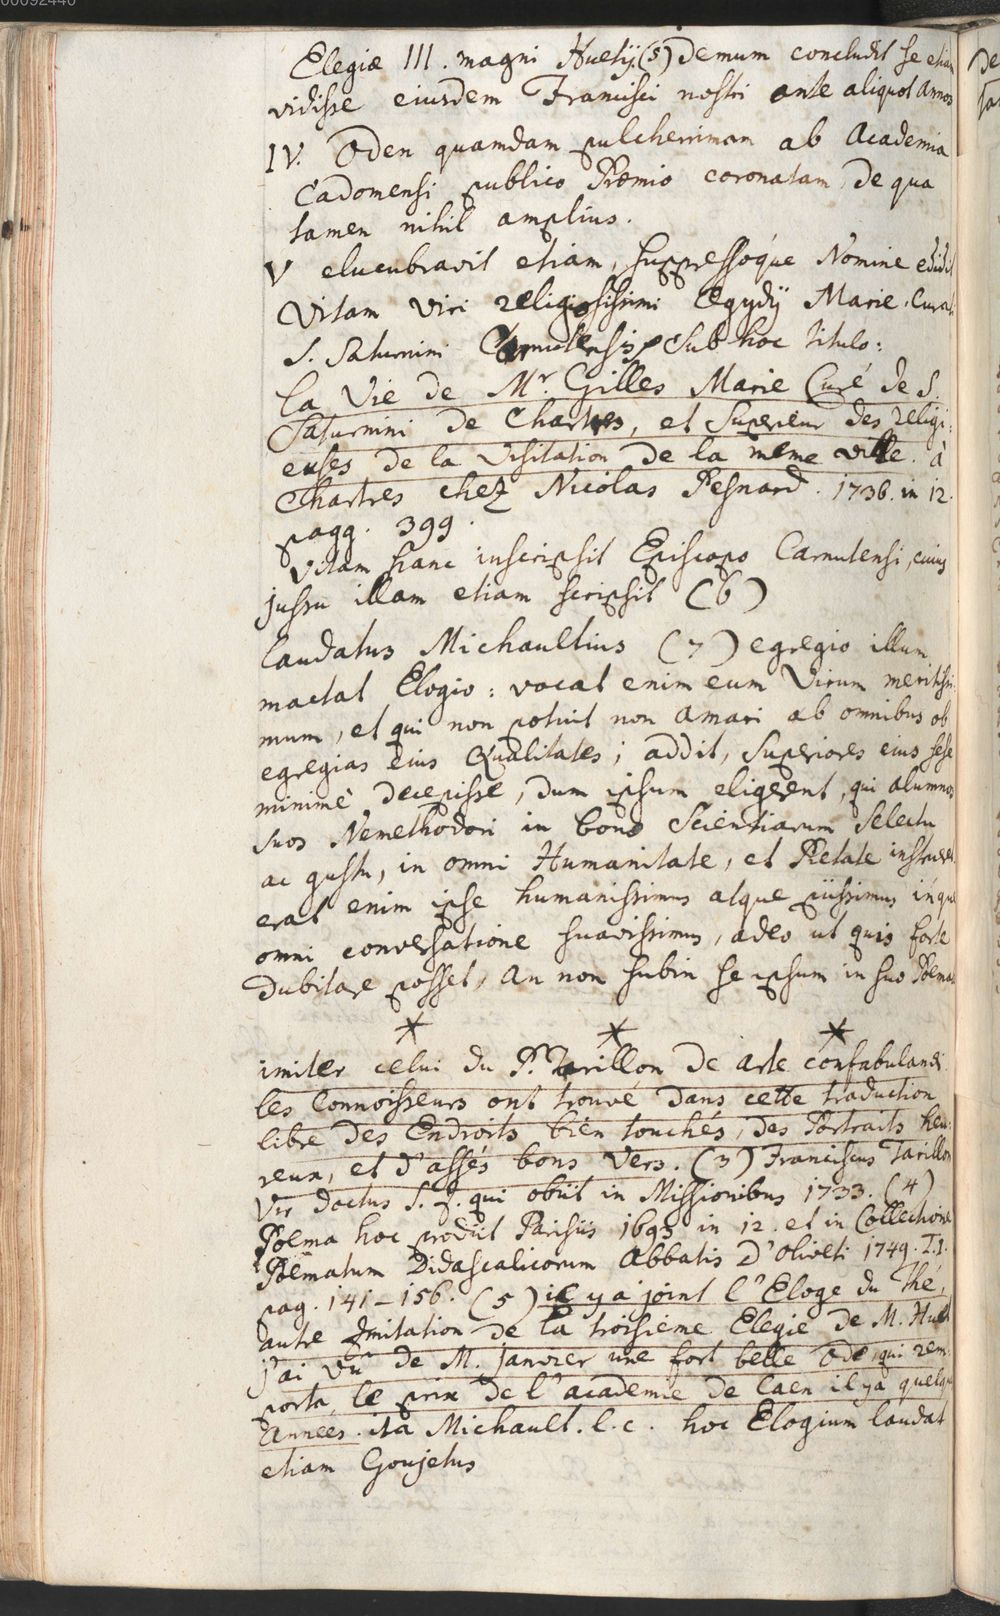 00092440
Elegiæ III. magni Huetij.(5) Demum concludit se etiam
vidisse eiusdem Francisci nostri ante aliquot Annos
IV. Oden quamdam pulcherrimam ab Academia
Cadomensi publico Præmio coronatam, de qua
tamen nihil amplius.
V elucubravit etiam, suppressoque Nomine edidit
Vitam viri religiosissimi Ægydij Marie. Curati
S. Saturnini Carnutensis sub hoc titulo:
La Vie de Mr. Gilles Marie Curé de S.
Saturnini de Chartres, et Superieur des religi:
euses de la Visitation de la meme ville. à
Chartres chez Nicolas Besnard. 1736. in 12.
pagg. 399.
Vitam hanc inscripsit Episcopo Carnutensi, cuius
jussu illam etiam scripsit (6)
laudatus Michaultius (7) egregio illum
mactat Elogio: vocat enim eum Virum meritissi:
mum, et qui non potuit non amari ab omnibus ob
egregias eius Qualitates; addit, Superiores eius sese
minimè decepisse, dum ipsum eligerent, qui alumnos
suos Nemethodori in bono Scientiarum Selectu
ac gustu, in omni Humanitate, et Pietate instrueret
erat enim ipse humanissimus atque piissimus inque
omni conversatione suavissimus, adeo ut quis forte
dubitare posset, an non subin se ipsum in suo Poema
* * *
imiter celui du P. Tarillon de arte confabulandi.
les Connoisseurs ont trouvé dans cette traduction
libre des Endroits bien touchés, des Portraits heu:
reux, et d'assés bons Vers. (3) Franciscus Tarillon
Vir doctus S. J. qui obiit in Missionibus 1733. (4)
Poema hoc prodiit Parisiis 1693 in 12. et in Collectione
Poëmatum Didascalicorum Abbatis D'Oliveti 1749. T.I.
pag. 141-156. (5) il y a joint l'Eloge du Thé,
autre Imitation de la troisieme Elegie de M. Huet
j'ai vu de M. Janvier une fort belle Ode, qui rem:
porta le prix de l'academie de Caen il ya quelque
Années. ita Michault. l.c. hoc Elogium laudat
etiam Goujetus